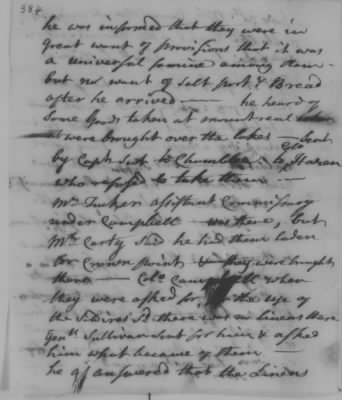 384
he was informed that they were in
great want of provisions that it was
a universal famine among them
but no want of Salt pork & Bread
after he arrived — he heard of
Some Goods taken at montreal
were brought over the lakes — Sent
by Capt Scot to Chamblee to Colo Hazen
who refused to take them —
Mr Tucker assistant Commissary
under Campbell was there, but
Mr Carty Said he had them laden
for Crown point & they were brought
there — Colo Campbell when
they were asked for, for the use of
the Soldiers Sd there was no linens there
Genll Sullivan Sent for him & asked
him what became of them —
he answered that the Linens